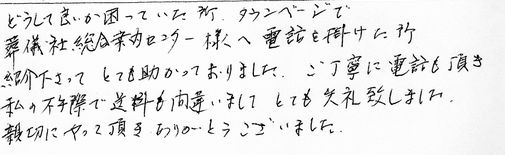 どうして良いか困っていた所、タウンページで
葬儀社総合案内センター様へ電話を掛けた所
紹介下さって とても助かっております。ご丁寧に電話も頂き
私の不手際で送料も間違いまして とても失礼致しました。
親切にやって頂き ありがとうございました。